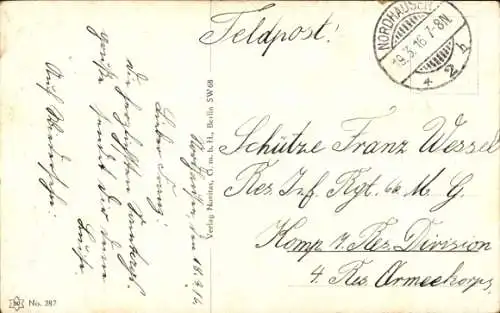 Feldpost!
NORDHAUSEN
19.3.16.7-8N.
* 2 b
Nordhausen, den 18.3.16.
Lieber Franz!
Die herzlichsten Sonntags
grüße sendet Dir Deine
Luise.
Auf Wiedersehn!
Verlag Hanitas, G. m. b. H., Berlin SW 68
Schütze Franz Wessel
Res. Inf. Rgt. 66 M. G.
Komp 7. Res. Division
4. Res. Armeekorps.
No. 287